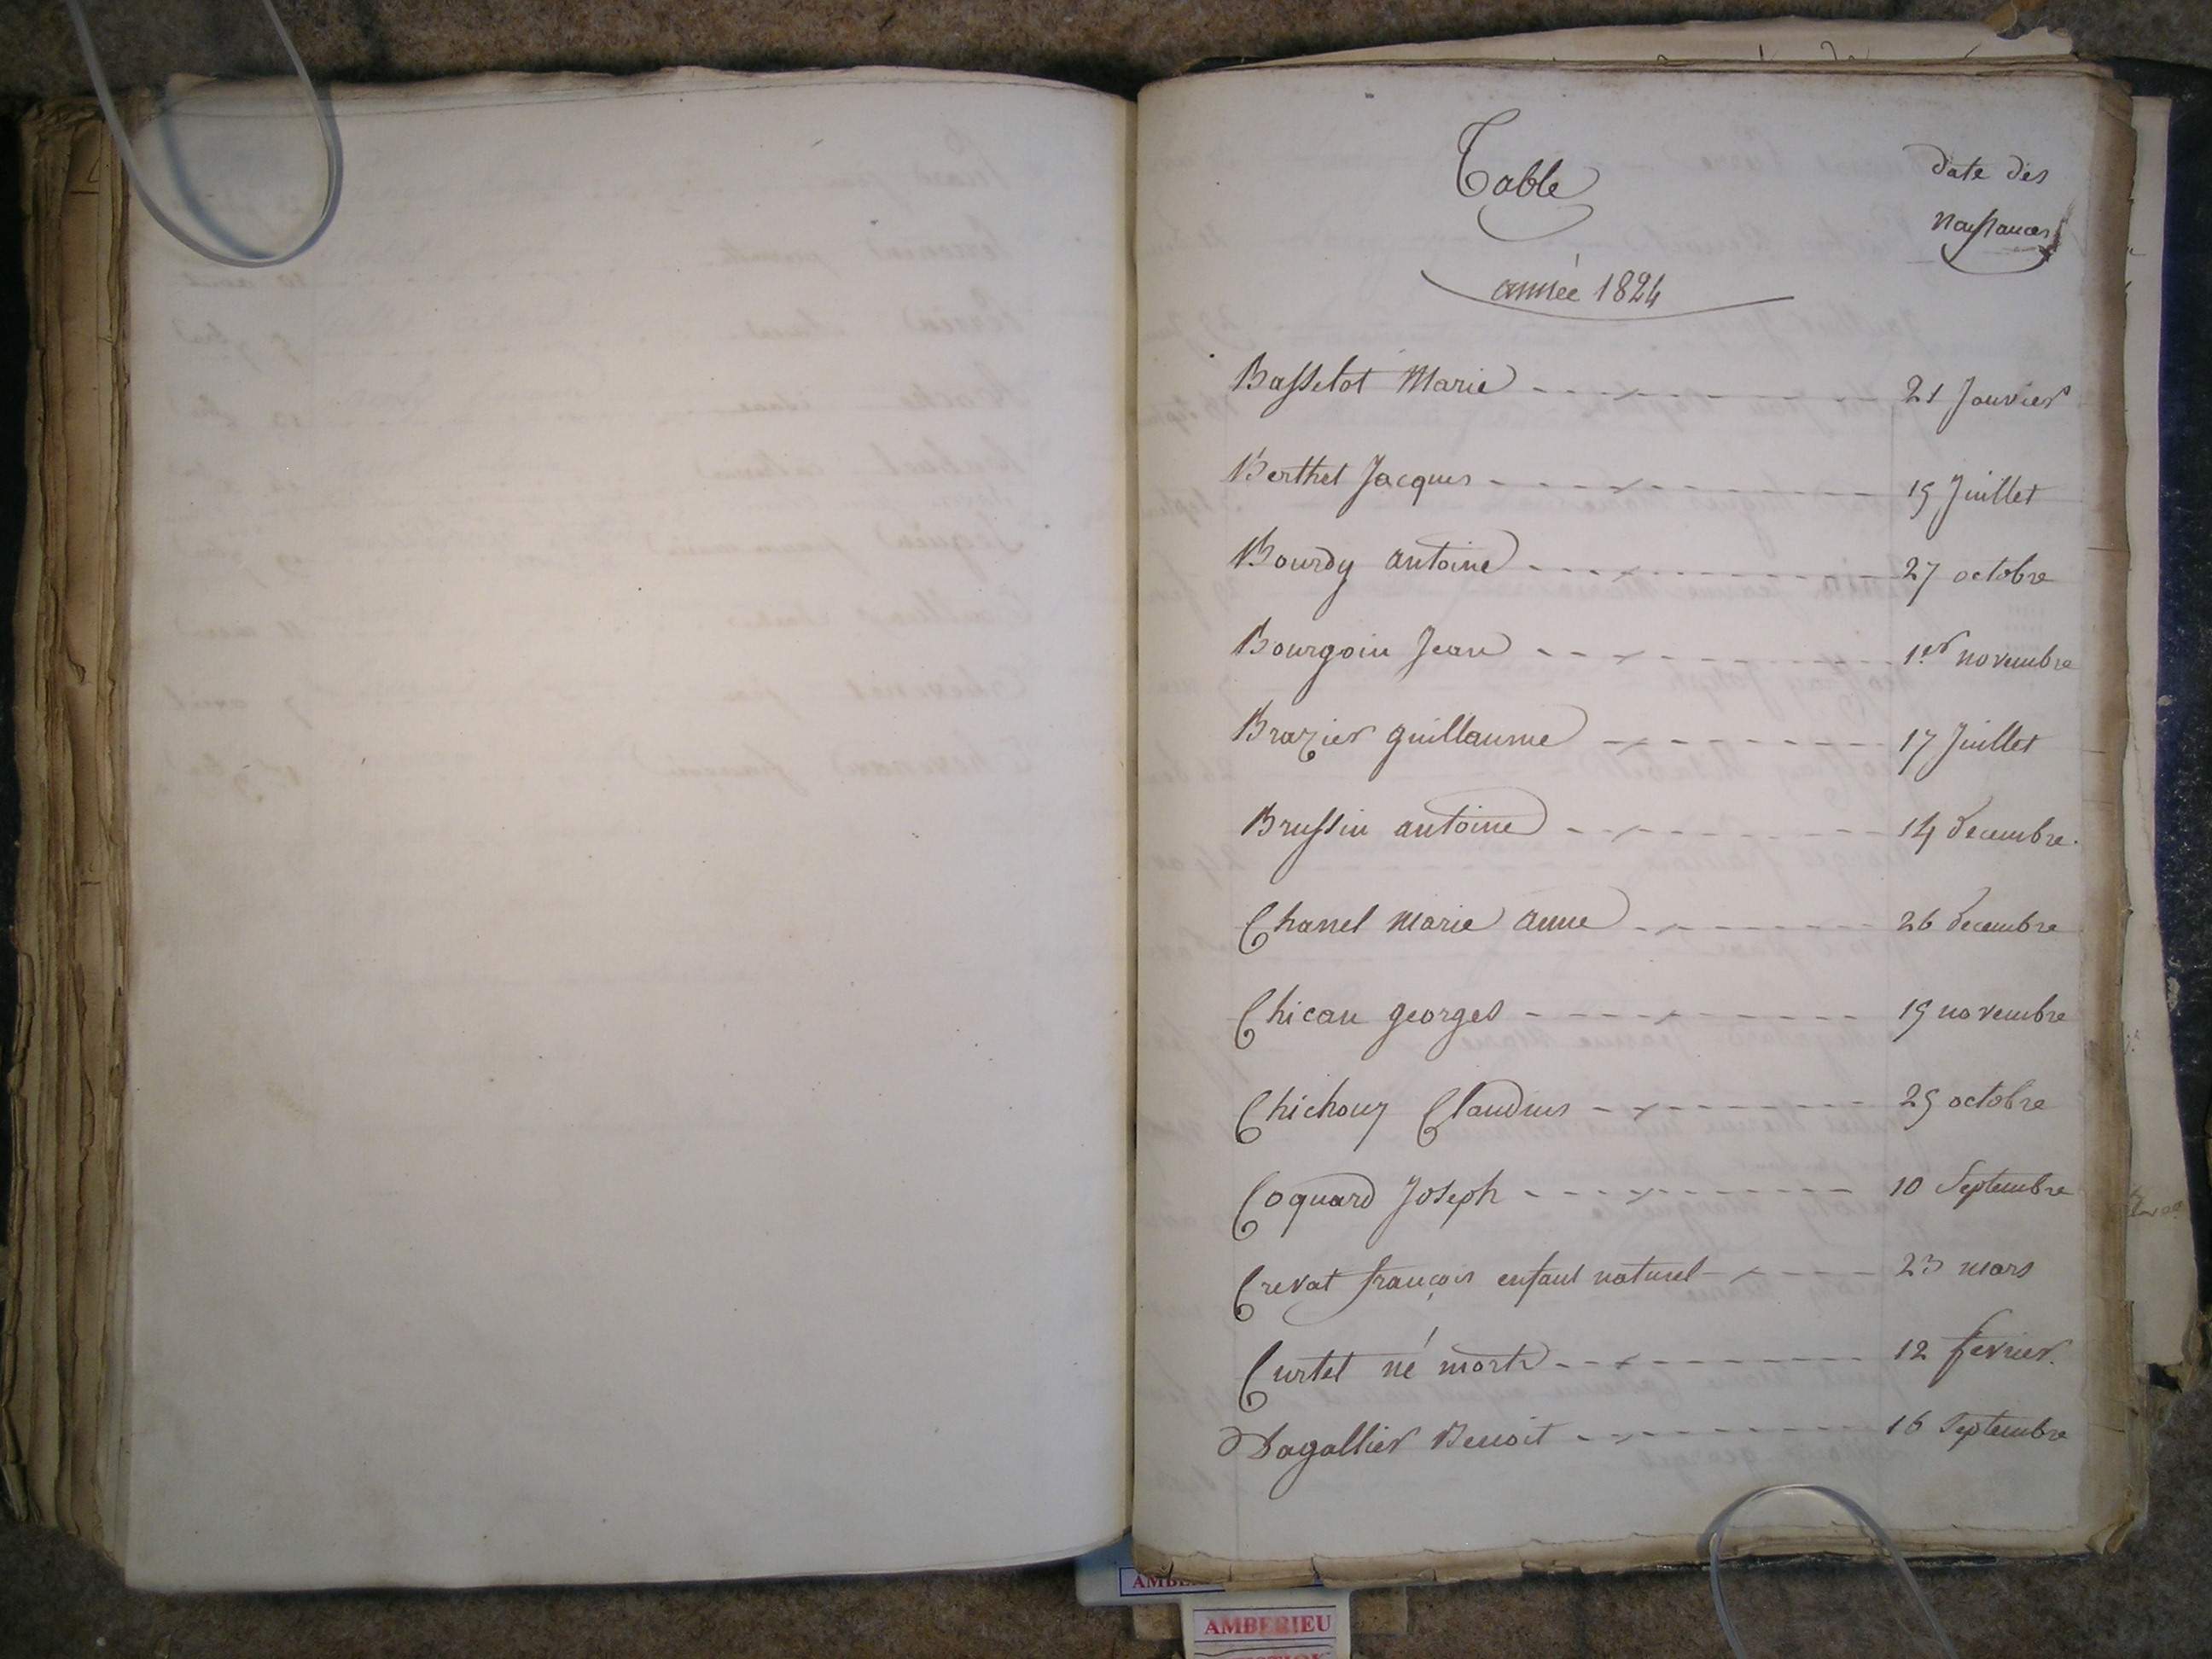 Table
année 1824
date des
naissances
Basselot Marie 21 Janvier
Berthet Jacques 19 Juillet
Bourdy antoine 27 octobre
Bourgoin Jean 1er novembre
Brazier guillaume 17 Juillet
Brussin antoine 14 decembre.
Chanel Marie anne 26 decembre
Chicau georges 19 novembre
Chichoux Claudius 29 octobre
Coquard Joseph 10 Septembre
Crevat françois enfant naturel 23 mars
Curtet né mort 12 fevrier.
Dagallier Benoit 16 Septembre
AMBERIEU